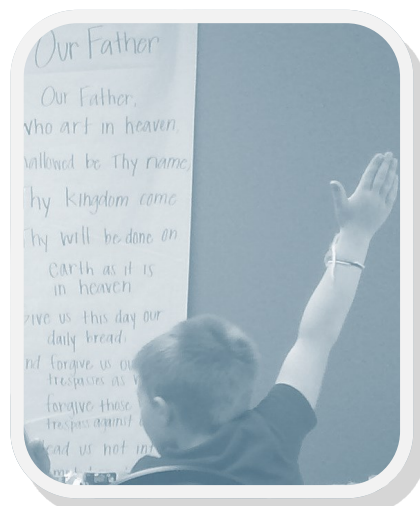 Our Father
Our Father,
who art in heaven,
hallowed be Thy name,
Thy kingdom come
Thy will be done on
earth as it is
in heaven
give us this day our
daily bread.
and forgive us our
trespasses as
forgive those
trespass against
lead us not int